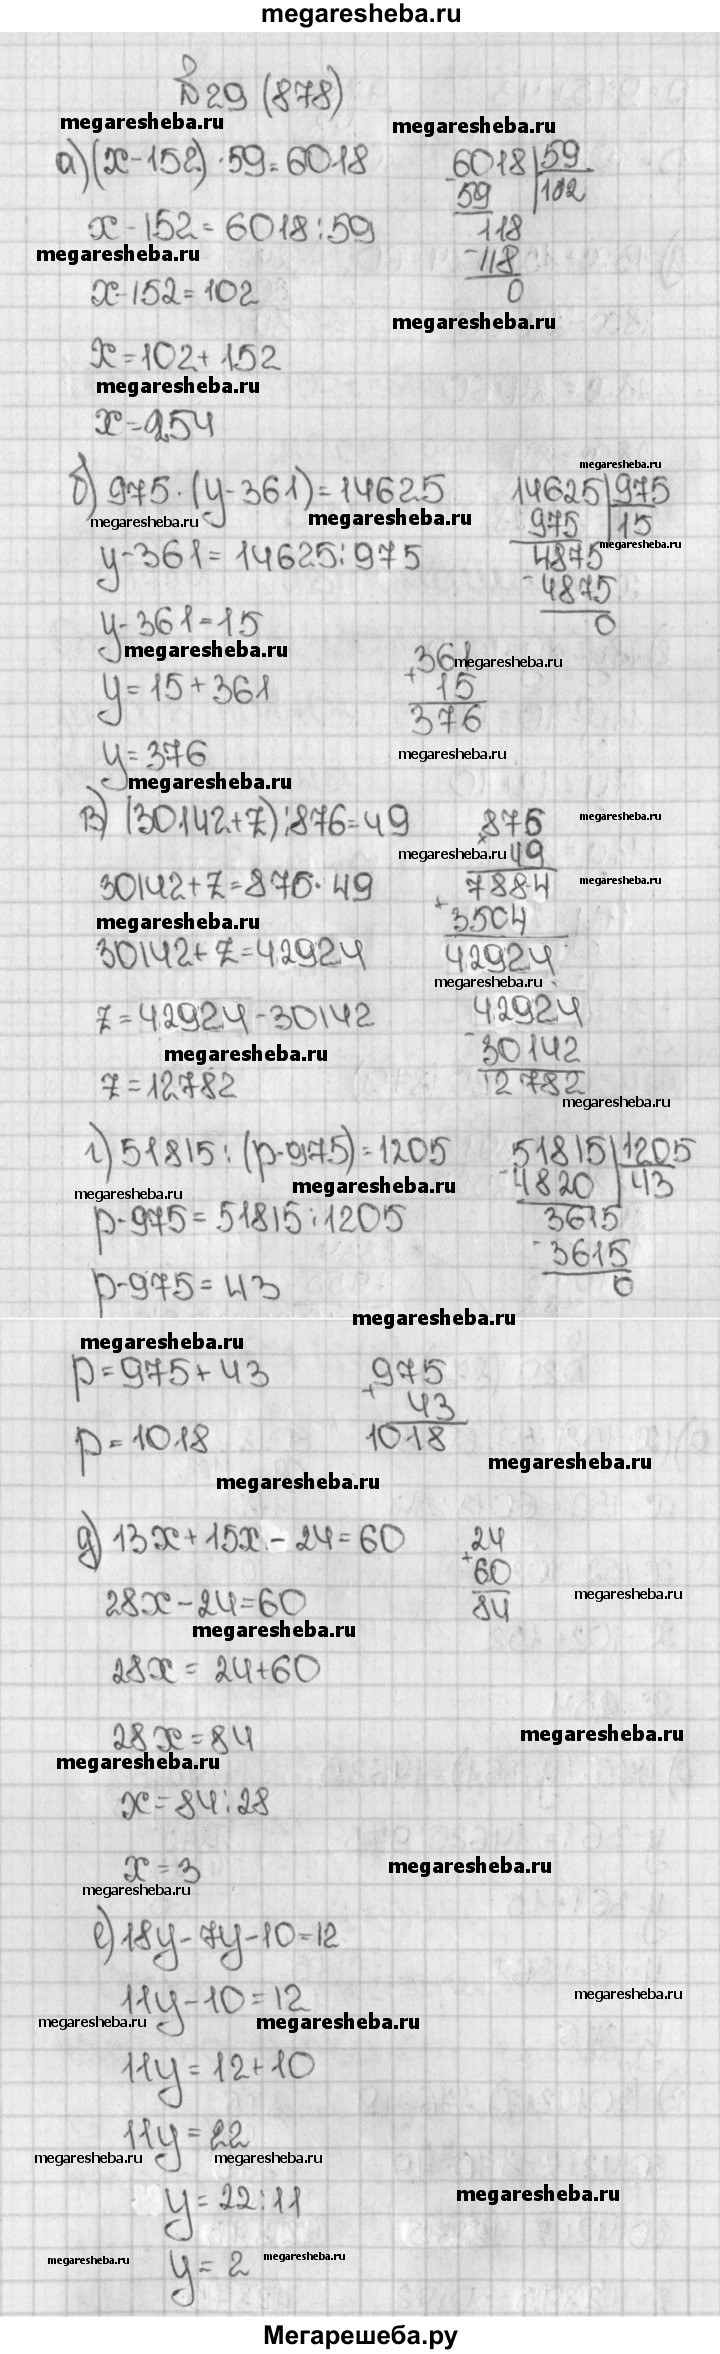 megaresheba.ru
№29 (878)
megaresheba.ru megaresheba.ru
а) (x-152)·59=6018 6018 59
59 102
x-152=6018:59 118
megaresheba.ru -118
x-152=102 0
megaresheba.ru
x=102+152
megaresheba.ru
x=254
megaresheba.ru
б) 975·(y-361)=14625 14625 975
megaresheba.ru megaresheba.ru 975 15
megaresheba.ru
y-361=14625:975 4875
-4875
y-361=15 0
megaresheba.ru 361 megaresheba.ru
y=15+361 +15
376
y=376 megaresheba.ru
megaresheba.ru
в) (30142+z):876=49 876 megaresheba.ru
megaresheba.ru ×49
30142+z=876·49 7884 megaresheba.ru
megaresheba.ru +3504
30142+z=42924 42924
megaresheba.ru
z=42924-30142 42924
megaresheba.ru -30142
z=12782 12782
megaresheba.ru
г) 51815:(p-975)=1205 51815 1205
megaresheba.ru megaresheba.ru -4820 43
p-975=51815:1205 3615
-3615
p-975=43 0
megaresheba.ru
megaresheba.ru
p=975+43 975
+43
p=1018 1018
megaresheba.ru
megaresheba.ru
д) 13x+15x-24=60 24
+60
28x-24=60 84 megaresheba.ru
megaresheba.ru
28x=24+60
28x=84 megaresheba.ru
megaresheba.ru
x=84:28
x=3 megaresheba.ru
megaresheba.ru
е) 18y-7y-10=12
11y-10=12 megaresheba.ru
megaresheba.ru megaresheba.ru
11y=12+10
11y=22
megaresheba.ru megaresheba.ru
y=22:11 megaresheba.ru
megaresheba.ru megaresheba.ru
y=2
Мегарешеба.ру